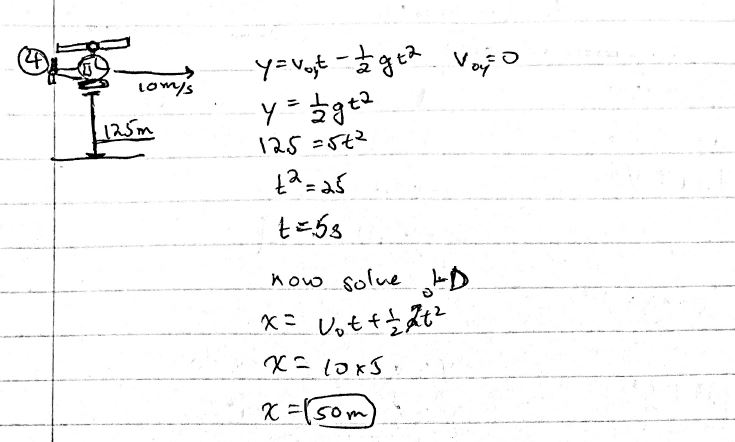 4
10m/s
125m
y = v₀yt − ½gt² v₀y = 0
y = ½gt²
125 = 5t²
t² = 25
t = 5s
now solve
x = v₀t + ½at²
x = 10 x 5
x = 50m